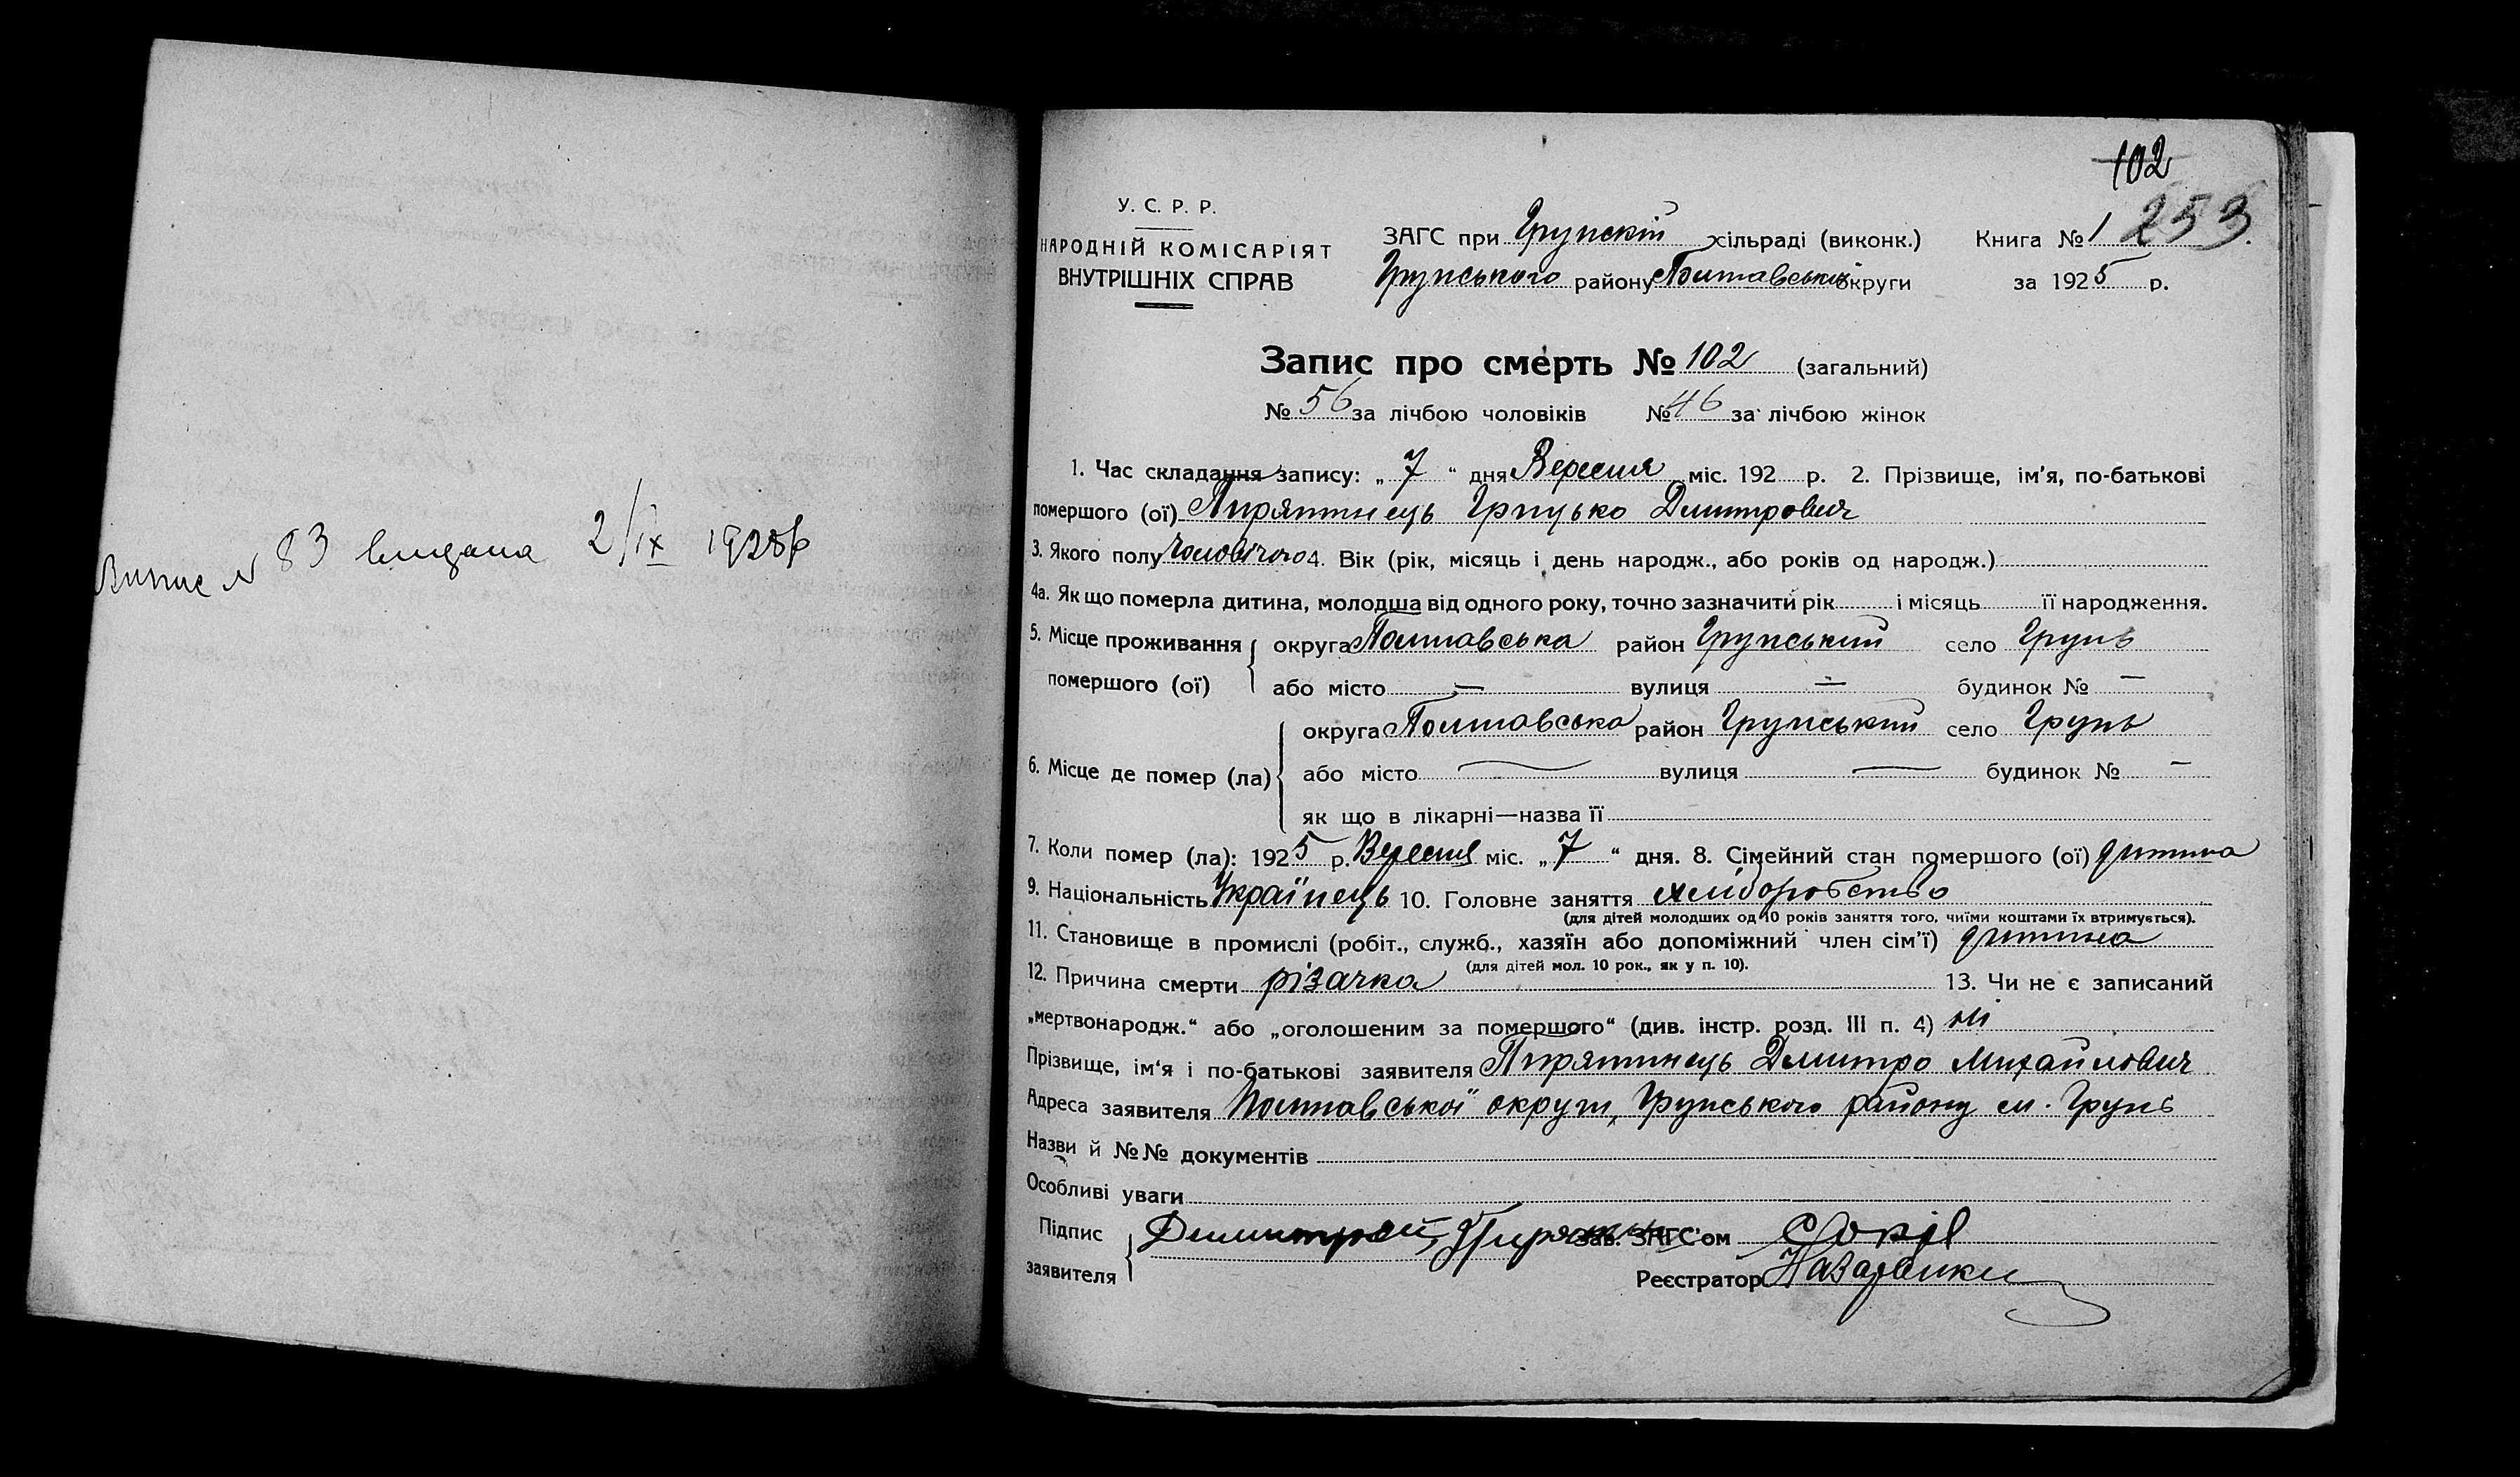 Выпис № 83 выдана 2/IX 1925 р
102
253.
У. С. Р. Р.
НАРОДНІЙ КОМІСАРІЯТ
ВНУТРІШНІХ СПРАВ
ЗАГС при Грунскій сільраді (виконк.)
Грунського району Полтавської округи
Книга № 1
за 1925 р.
Запис про смерть № 102 (загальний)
№ 56 за лічбою чоловіків № 46 за лічбою жінок
1. Час складання запису: „ 7 “ дня Вересня міс. 192 р. 2. Прізвище, ім’я, по-батькові
помершого (ої) Пирятинець Грицько Дмитрович
3. Якого полу чоловічого 4. Вік (рік, місяць і день народж., або років од народж.)
4а. Як що померла дитина, молодша від одного року, точно зазначити рік і місяць її народження.
5. Місце проживання помершого (ої) округа Полтавська район Грунський село Грунь
або місто — вулиця — будинок № —
6. Місце де помер (ла) округа Полтавська район Грунський село Грунь
або місто — вулиця — будинок № —
як що в лікарні—назва її
7. Коли помер (ла): 1925 р. Вересня міс. „ 7 “ дня. 8. Сімейний стан помершого (ої) дитина
9. Національність Українець 10. Головне заняття хліборобство
(для дітей молодших од 10 років заняття того, чиїми коштами їх втримується).
11. Становище в промислі (робіт., служб., хазяїн або допоміжний член сім’ї) дитина
(для дітей мол. 10 рок., як у п. 10).
12. Причина смерти різачка 13. Чи не є записаний
„мертвонародж.“ або „оголошеним за помершого“ (див. інстр. розд. III п. 4) ні
Прізвище, ім‘я і по-батькові заявителя Пирятинець Дмитро Михайлович
Адреса заявителя Полтавської округи, Грунського району м. Грунь
Назви й №№ документів
Особливі уваги
Підпис заявителя
Зав. ЗАГС’ом
Реєстратор